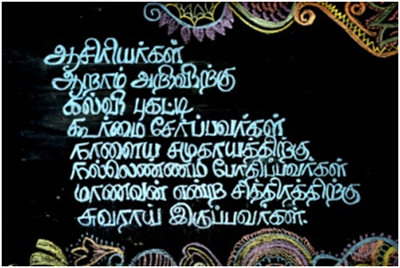 ஆசிரியர்கள்
ஆறாம் அறிவிற்கு
கல்வி புகட்டி
கூர்மை சேர்ப்பவர்கள்
நாளைய சமுதாயத்திற்கு
நல்லெண்ணம் போதிப்பவர்கள்
மாணவன் என்ற சித்திரத்திற்கு
சுவராய் இருப்பவர்கள்.